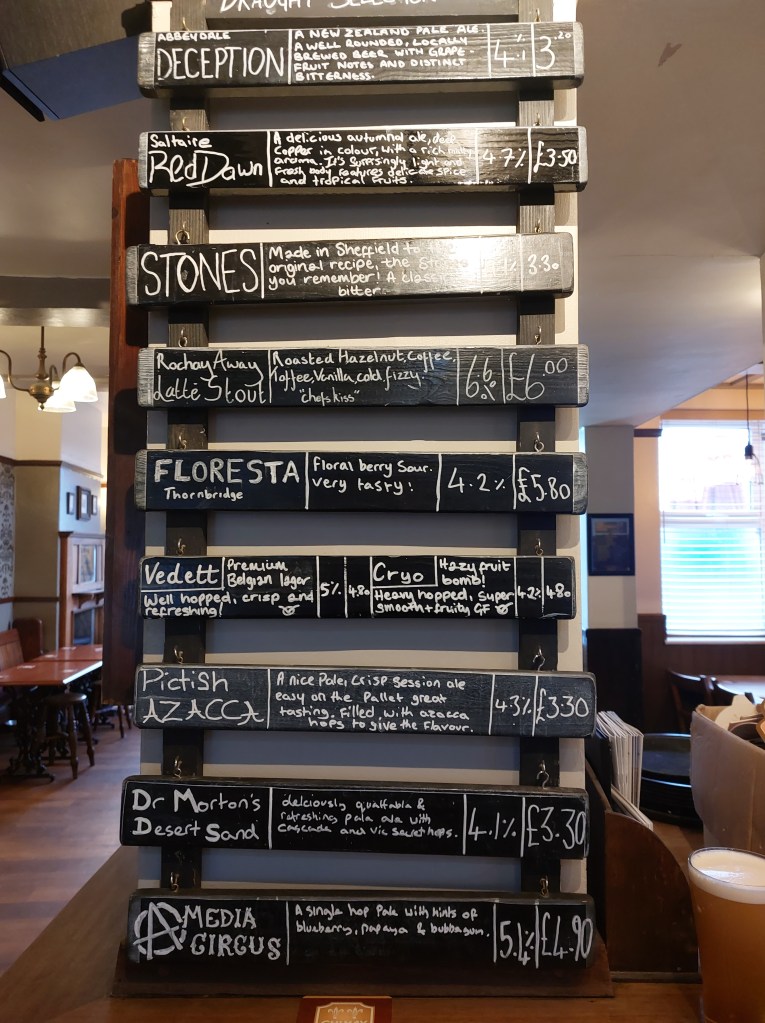 DRAUGHT SELECTION
ABBEYDALE
DECEPTION
A NEW ZEALAND PALE ALE.
A WELL ROUNDED, LOCALLY
BREWED BEER WITH GRAPE
FRUIT NOTES AND DISTINCT
BITTERNESS.
4.1
3.20
Saltaire
Red Dawn
A delicious autumnal ale, deep
copper in colour, with a rich
aroma. It's surprisingly light and
fresh body features delicate spice
and tropical fruits.
4.7%
£3.50
STONES
Made in Sheffield to the
original recipe, the
you remember! A classic
bitter
3.30
Rochay Away
Latte Stout
Roasted Hazelnut, Coffee,
Toffee, Vanilla, cold, fizzy!
"chefs kiss"
6.6%
£6.00
FLORESTA
Thornbridge
floral berry Sour.
very tasty!
4.2%
£5.80
Vedett
Premium
Belgian lager
Well hopped, crisp and
refreshing!
5%
4.80
Cryo
Hazy fruit
bomb!
Heavy hopped, super
smooth + fruity GF
4.2%
4.80
Pictish
AZACCA
A nice Pale, crisp session ale
easy on the Pallet great
tasting. Filled with azacca
hops to give the flavour.
4.3%
£3.30
Dr Morton's
Desert Sand
delciously quaffable &
refreshing pale ale with
Cascade and vic secret hops.
4.1%
£3.30
MEDIA
CIRCUS
A single hop Pale with hints of
blueberry, papaya & bubblegum.
5.4%
£4.90